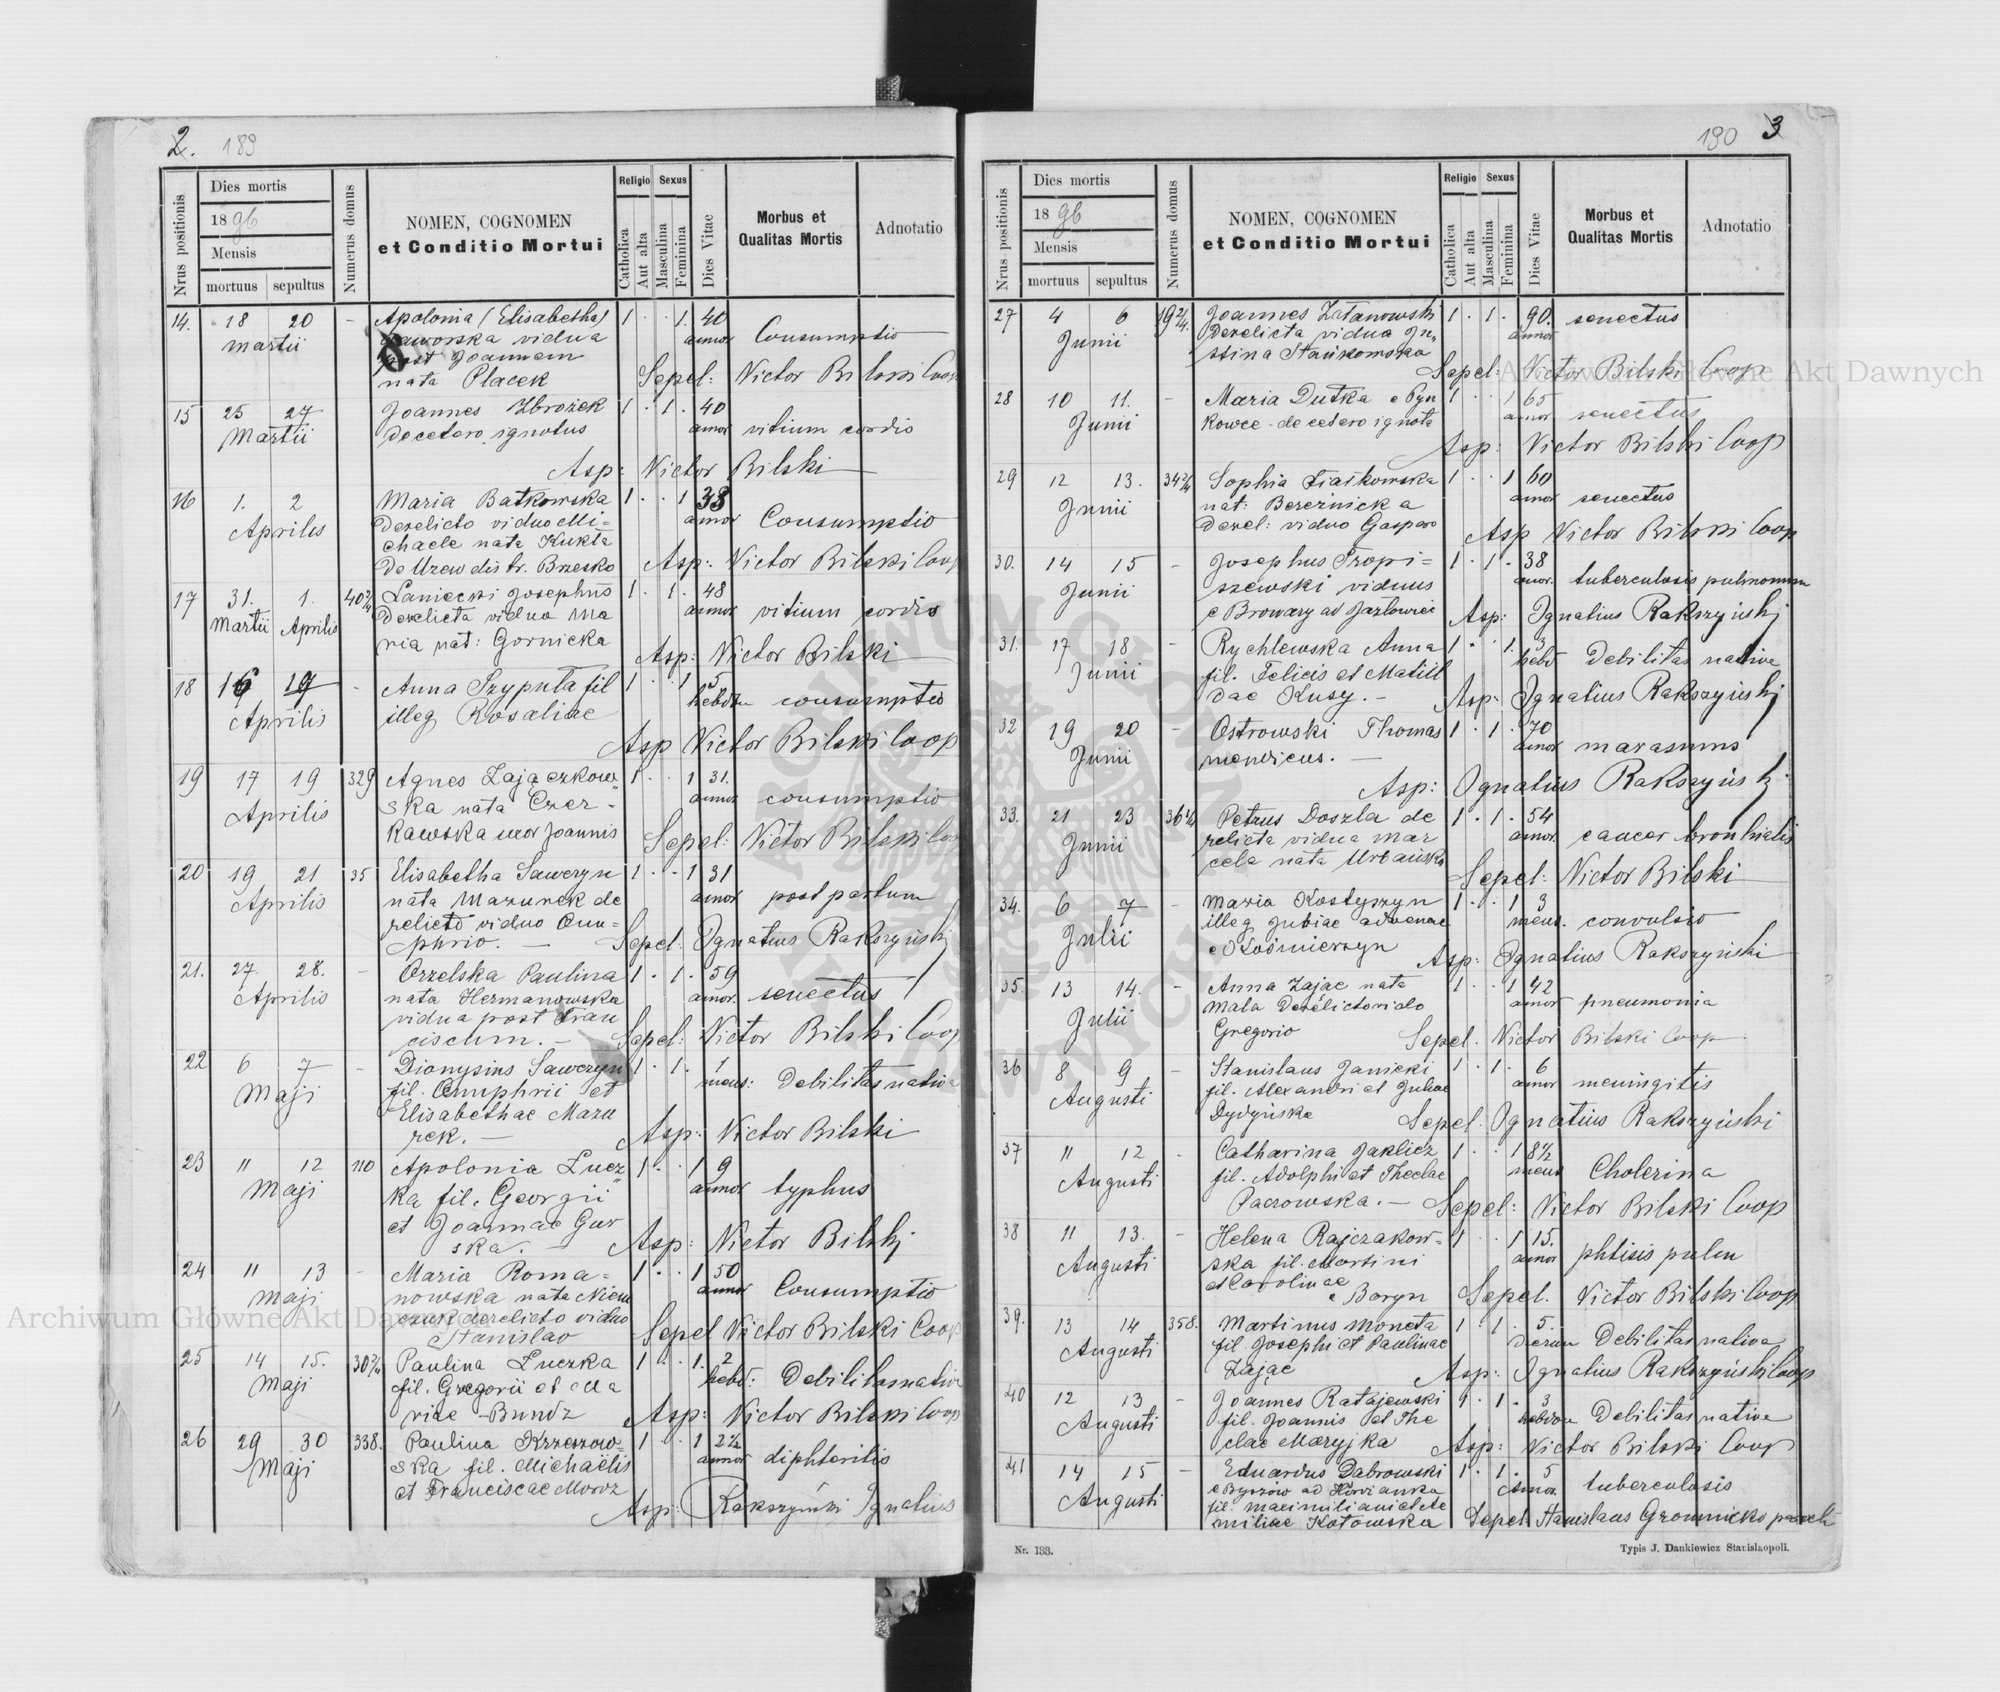 2. 189
Nrus positionis
Dies mortis
18 96
Mensis
mortuus sepultus
Numerus domus
NOMEN, COGNOMEN
et Conditio Mortui
Religio Sexus
Catholica
Aut alta
Masculina
Feminina
Dies Vitae
Morbus et
Qualitas Mortis
Adnotatio
14. 18 20 - Apolonia (Elisabetha) 1 . . 1. 40
Martii Jaworska vidua annor Consumptio
post Joannem
nata Placek Sepel: Victor Bilski Coop
15 25 27 Joannes Zbrożek 1 . 1 . 40
Martii De cetero ignotus annor vitium cordis
Asp: Victor Bilski
16 1. 2 Maria Batkowska 1 . . 1 38
Aprilis Derelicto viduo Mi= annor Consumptio
chaele nata Kukła
De Uzew distr. Brzesko Asp: Victor Bilski Coop
17 31. 1. 40 2/4 Laniecki Josephus 1 . 1 . 48
Martii Aprilis Derelicta vidua Ma annor vitium cordis
ria nat: Gornicka
Asp: Victor Bilski
18 16 19 - Anna Szypuła fil 1 . 1 5
Aprilis illeg Rosaliae hebdu consumptio
Asp Victor Bilski Coop
19 17 19 329 Agnes Zajączkow 1 . . 1 31.
Aprilis ska nata Czer- annor consumptio
kawska uxor Joannis Sepel: Victor Bilski Coo
20 19 21 35 Elisabetha Sawczyn 1 . . 1 31
Aprilis nata Mazurek de annor post partum
relicto viduo Onu-
phrio. — Sepel: Ignatius Rakszyński
21. 27. 28. - Orzelska Paulina 1 . 1 . 59
Aprilis nata Hermanowska annor. senectus
vidua post Fran
ciscum. — Sepel: Victor Bilski Coop
22 6 7 - Dionysius Sawczyn 1 . 1 . 1
Maji fil. Onuphrii et mens: Debilitas nativa
Elisabethae Mazu
rek. — Asp: Victor Bilski
23 11 12 110 Apolonia Łucz 1 . . 1 9
Maji ka fil. Georgii annor typhus
et Joannae Gur
ska. — Asp: Victor Bilski
24 11 13 - Maria Roma= 1 . . 1 50
Maji nowska nata Niem annor Consumptio
czuk derelicto viduo
Stanislao Sepel Victor Bilski Coop
25 14 15. 30 2/4 Paulina Łuczka 1 . . 1. 2
Maji fil. Gregorii et Ma hebd: Debilitas nativa
riae Bundz Asp: Victor Bilski Coop
26 29 30 338. Paulina Krzeszow= 1 . 1 2 1/2
Maji ska fil. Michaelis annor diphteritis
et Franciscae Moroz
Asp: Rakszyński Ignatius
190 3
Nrus positionis
Dies mortis
18 96
Mensis
mortuus sepultus
Numerus domus
NOMEN, COGNOMEN
et Conditio Mortui
Religio Sexus
Catholica
Aut alta
Masculina
Feminina
Dies Vitae
Morbus et
Qualitas Mortis
Adnotatio
27 4 6 192/4. Joannes Żztanowski 1 . 1 . 90. senectus
Junii Derelicta vidua Ju„ annor
stina Stańkowska
Sepel: Victor Bilski Coop
28 10 11. - Maria Dutka e Pyn 1 . 1 65
Junii kowce - de cetero ignota annor senectus
Asp: Victor Bilski Coop
29 12 13. 34 2/4 Sophia Fiałkowska 1 . . 1 60
Junii nat: Bereźnicka annor senectus
Derel: viduo Gasparo Asp Victor Bilski Coop
30. 14 15 - Josephus Tropi= 1 . 1 . 38
Junii szewski viduus annor. tuberculosis pulmonum
e Browary ad Jazłowiec Asp: Ignatius Rakszyński
31. 17 18 - Rychlewska Anna 1 . . 1. 3
Junii fil. Felicis et Matill hebd Debilitas nativa
dae Kusy. - Asp: Ignatius Rakszyński
32 19 20 - Ostrowski Thomas 1 . 1 . 70
Junii mendicus. — annor marasmus
Asp: Ignatius Rakszyński
33. 21 23 36 2/4 Petrus Doszla de 1 . 1 . 54
Junii relicta vidua Mar annor. cancer bronhialis
cela nata Urbańska
Sepel: Victor Bilski
34. 6 7 - Maria Kostyszyn 1 . . 1 3
Julii illeg Jubiae advenae mens. convulsio
e Kośmierzyn Asp: Ignatius Rakszyński
35. 13 14. - Anna Zając nata 1 . 1 42
Julii Mala Derelicto viduo annor pneumonia
Gregorio Sepel. Victor Bilski Coop
36 8 9 - Stanislaus Janicki 1 . 1 . 6
Augusti fil. Alexandri et Juliae annor meningitis
Dydyńska Sepel. Ignatius Rakszyński
37 11 12 - Catharina Jaklicz 1 . 1 8 1/2
Augusti fil. Adolphi et Theclae mens Cholerina
Pacrowska. - Sepel: Victor Bilski Coop
38 11 13. - Helena Rajczakow= 1 . 1 15.
Augusti ska fil. Martini annor phtisis pulm
et Carolinae
e Baryn Sepel. Victor Bilski Coop
39. 13 14 358. Martinus Moneta 1 1 . 5.
Augusti fil. Josephi et Paulinae dierum Debilitas nativa
Zając Asp: Ignatius Rakszyński Coop
40 12 13 - Joannes Ratajewski 1 . 1 . 3
Augusti fil. Joannis et The hebdom Debilitas nativa
clae Mazyjka Asp: Victor Bilski Coop
41 14 15 - Eduardus Dabrowski 1 . 1 . 5
Augusti e Byszów ad annor. tuberculosis
fil. Maximiliani et Ae
miliae Kotowska Sepel Stanislaus Gromnicki paroch
Nr. 133. Typis J. Dankiewicz Stanislaopoli.
Archiwum Główne Akt Dawnych
Archiwum Główne Akt Dawnych